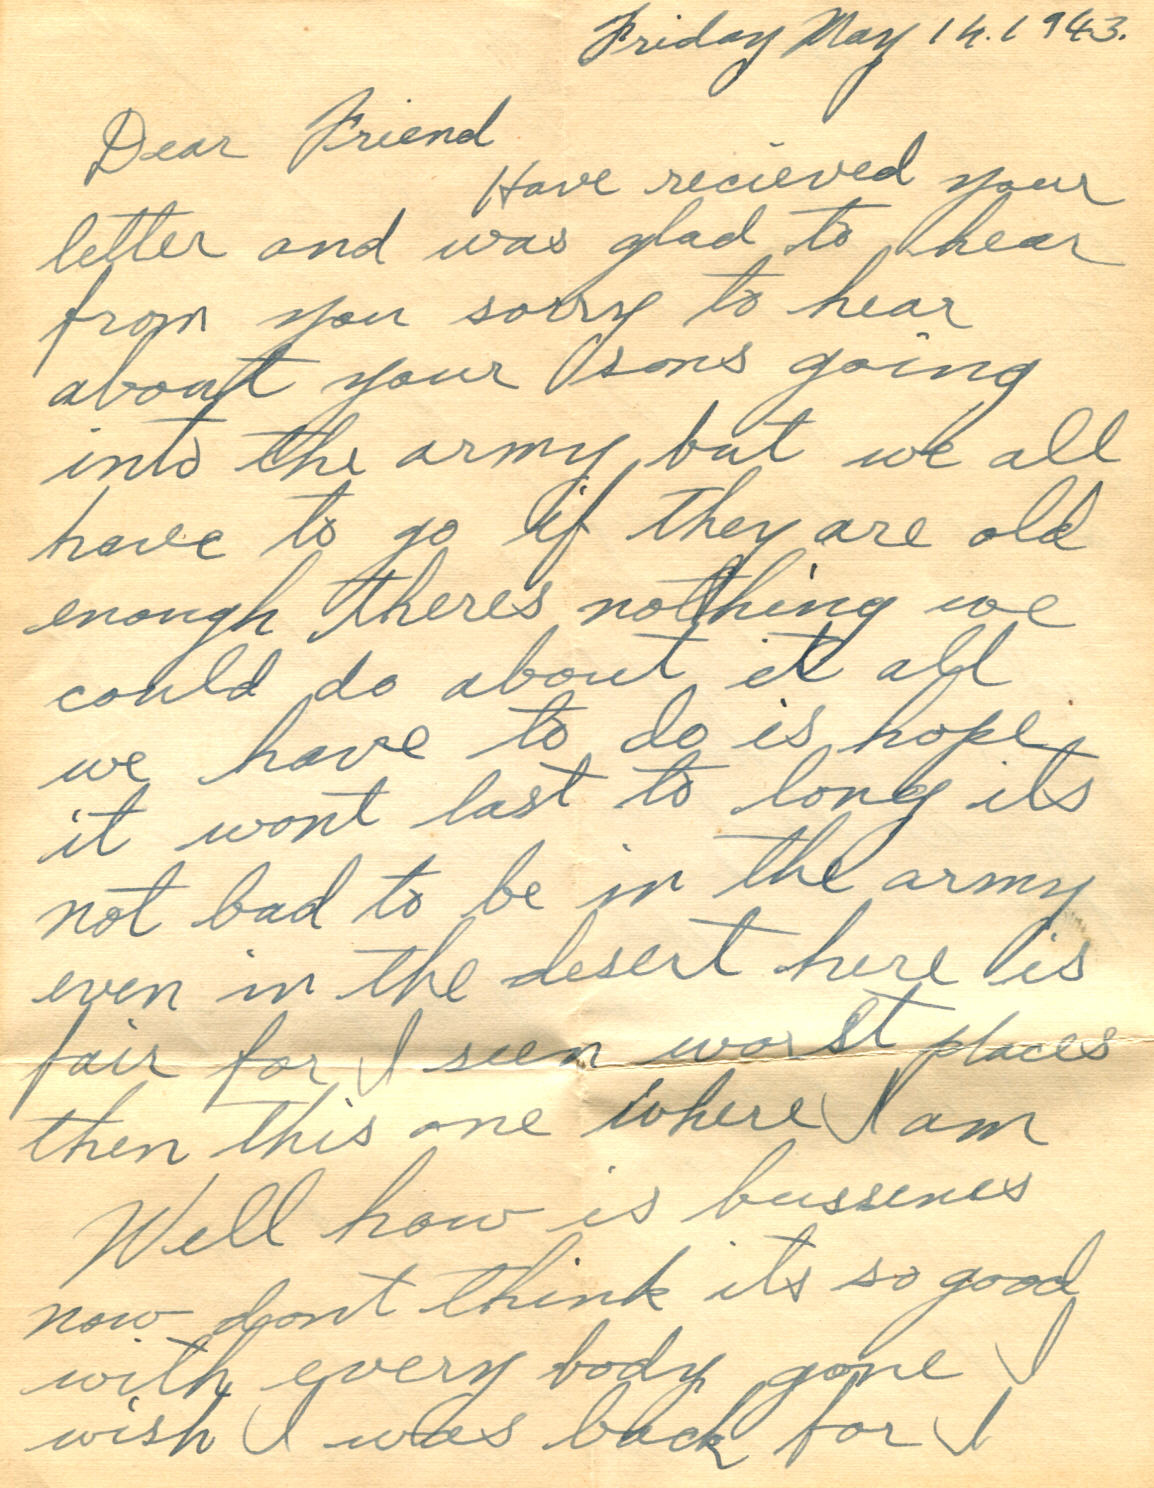 Friday May 14. 1943.
Dear Friend
Have recieved your
letter and was glad to hear
from you sorry to hear
about your sons going
into the army but we all
have to go if they are old
enough theres nothing we
could do about it all
we have to do is hope
it wont last to long its
not bad to be in the army
even in the desert here is
fair for I seen worst places
then this one where I am
Well how is bussenes
now dont think its so good
with every body gone I
wish I was back for I